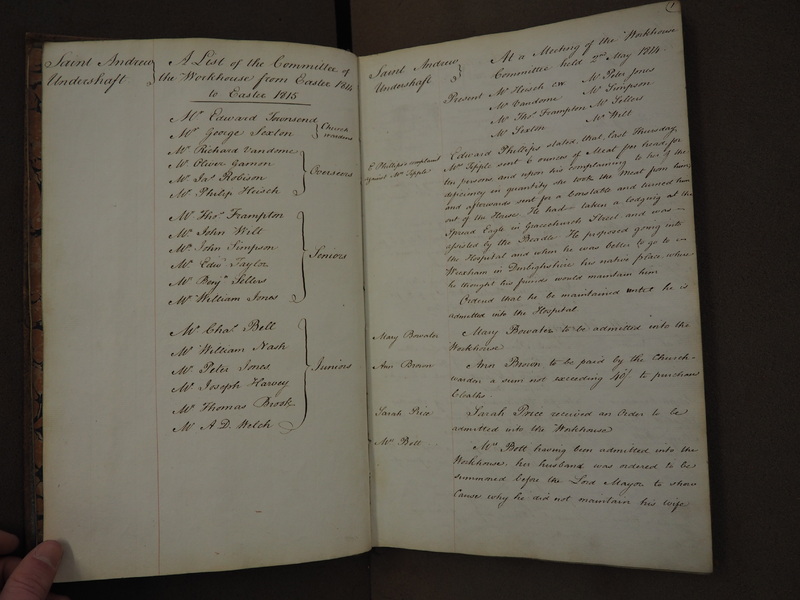 Saint Andrew
Undershaft
A List of the Committee of
the Workhouse from Easter 1814
to Easter 1815
Mr Edward Townsend
Mr George Sexton
Church
wardens
Mr Richard Vandome
Mr Oliver Garnon
Mr Jas Robison
Mr Philip Heisch
Overseers
Mr Thos Frampton
Mr John Wilt
Mr John Simpson
Mr Edwd Taylor
Mr Benjn Sellers
Mr William Jones
Seniors
Mr Chas Bell
Mr William Nash
Mr Peter Jones
Mr Joseph Harvey
Mr Thomas Brook
Mr A.D. Welch
Juniors
1
Saint Andrew
Undershaft
At a Meeting of the Workhouse
Committee held 2nd May 1814
Present Mr Heisch Mr Peter Jones
Mr Vandome Mr Simpson
Mr Thos Frampton Mr Sellers
Mr Sexton Mr Wilt
E Phillips complaint
against Mr Tipple
Edward Phillips stated that last Thursday,
Mr Tipple sent 6 ounces of Meat per head for
ten persons and upon his complaining to her of the
deficiency in quantity she took the meat from him,
and afterwards sent for a Constable and turned him
out of the House. He had taken a lodging at the
Spread Eagle in Gracechurch Street and was
assisted by the Beadle. He proposed going into
the Hospital and when he was better to go to
Wrexham in Denbighshire his native place where
he thought his friends would maintain him
Ordered that he be maintained until he is
admitted into the Hospital
Mary Bowater
Mary Bowater to be admitted into the
Workhouse
Ann Brown
Ann Brown to be paid by the Church-
warden a sum not exceeding 40/ to purchase
Cloaths
Sarah Price
Sarah Price received an Order to be
admitted into the Workhouse
Mrs Bott
Mrs Bott having been admitted into the
Workhouse, her husband was ordered to be
summoned before the Lord Mayor to shew
Cause why he did not maintain his wife